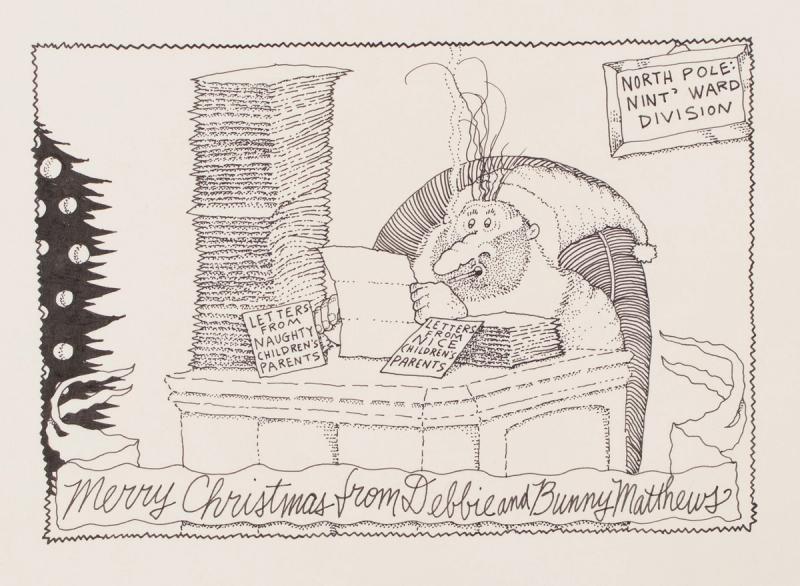 NORTH POLE:
NINT' WARD
DIVISION
LETTERS
FROM
NAUGHTY
CHILDREN'S
PARENTS
LETTERS
FROM
NICE
CHILDREN'S
PARENTS
Merry Christmas from Debbie and Bunny Matthews